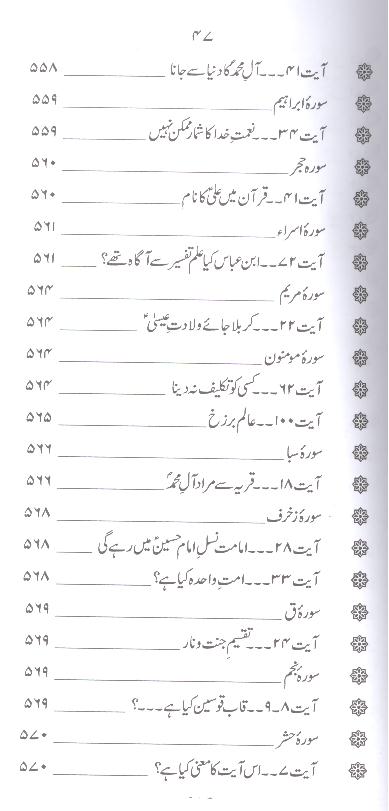 ۴۷
آیت ۴۱۔۔۔آلِ محمدؐ کا دنیا سے جانا ۵۵۸
سورۂ ابراہیم ۵۵۹
آیت ۳۴۔۔۔نعمتِ خدا کا شمار ممکن نہیں ۵۵۹
سورہ حجر ۵۶۰
آیت ۴۱۔۔قرآن میں علیؑ کا نام ۵۶۰
سورۂ اسراء ۵۶۱
آیت ۷۲۔۔ابن عباس کیا علم تفسیر سے آگاہ تھے؟ ۵۶۱
سورۂ مریم ۵۶۴
آیت ۲۲۔۔۔کربلا جائے ولادتِ عیسیٰؑ ۵۶۴
سورۂ مومنون ۵۶۴
آیت ۶۲۔۔۔کسی کو تکلیف نہ دینا ۵۶۴
آیت ۱۰۰۔۔عالم برزخ ۵۶۵
سورۂ سبا ۵۶۶
آیت ۱۸۔۔۔قریہ سے مراد آلِ محمدؐ ۵۶۶
سورۂ زخرف ۵۶۸
آیت ۲۸۔۔۔امامت نسلِ امام حسینؑ میں رہے گی ۵۶۸
آیت ۳۳۔۔۔امتِ واحدہ کیا ہے؟ ۵۶۸
سورۂ ق ۵۶۹
آیت ۲۴۔۔۔تقسیمِ جنت و نار ۵۶۹
سورۂ نجم ۵۶۹
آیت ۸۔۹۔۔قاب قوسین کیا ہے۔۔۔؟ ۵۶۹
سورۂ حشر ۵۷۰
آیت ۷۔۔اس آیت کا معنی کیا ہے؟ ۵۷۰